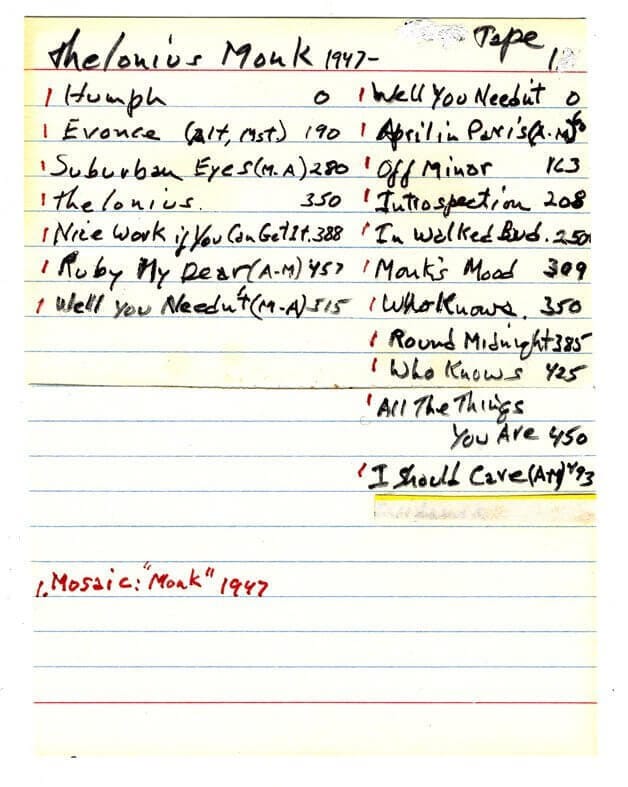 Thelonius Monk 1947-
Tape 1.
1 Humph 0
1 Evonce (alt, Mst) 190
1 Suburban Eyes (M-A) 280
1 Thelonius. 350
1 Nice Work if You Can Get It. 388
1 Ruby My Dear (A-M) 457
1 Well You Needn't (M-A) 515
1 Well You Needn't 0
1 April in Paris (A-M)
1 Off Minor 163
1 Introspection 208
1 In Walked Bud. 250
1 Monk's Mood 309
1 Who Knows. 350
1 Round Midnight 385
1 Who Knows 425
1 All The Things
You Are 450
1 I Should Care (AM) 493
1. Mosaic: "Monk" 1947